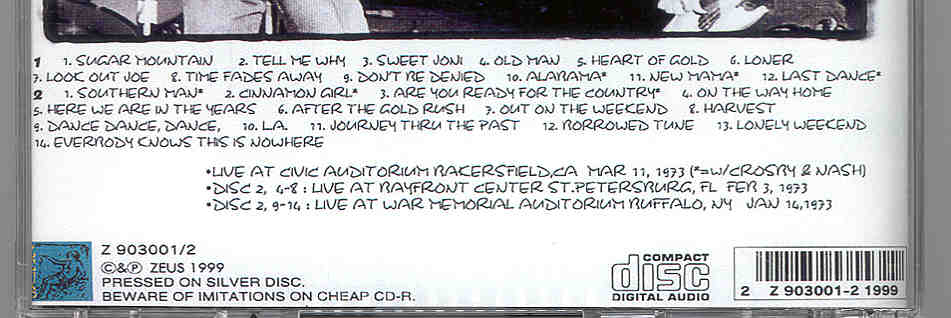 1 1. SUGAR MOUNTAIN 2. TELL ME WHY 3. SWEET JONI 4. OLD MAN 5. HEART OF GOLD 6. LONER
7. LOOK OUT JOE 8. TIME FADES AWAY 9. DON'T BE DENIED 10. ALABAMA* 11. NEW MAMA* 12. LAST DANCE*
2 1. SOUTHERN MAN* 2. CINNAMON GIRL* 3. ARE YOU READY FOR THE COUNTRY* 4. ON THE WAY HOME
5. HERE WE ARE IN THE YEARS 6. AFTER THE GOLD RUSH 7. OUT ON THE WEEKEND 8. HARVEST
9. DANCE DANCE, DANCE, 10. L.A. 11. JOURNEY THRU THE PAST 12. BORROWED TUNE 13. LONELY WEEKEND
14. EVERBODY KNOWS THIS IS NOWHERE
•LIVE AT CIVIC AUDITORIUM BAKERSFIELD,CA MAR 11, 1973 (*=W/CROSBY & NASH)
•DISC 2, 4-8 : LIVE AT BAYFRONT CENTER ST.PETERSBURG, FL FEB 3, 1973
•DISC 2, 9-14 : LIVE AT WAR MEMORIAL AUDITORIUM BUFFALO, NY JAN 14,1973
Z 903001/2
©&℗ ZEUS 1999
PRESSED ON SILVER DISC.
BEWARE OF IMITATIONS ON CHEAP CD-R.
COMPACT
disc
DIGITAL AUDIO
2 Z 903001-2 1999